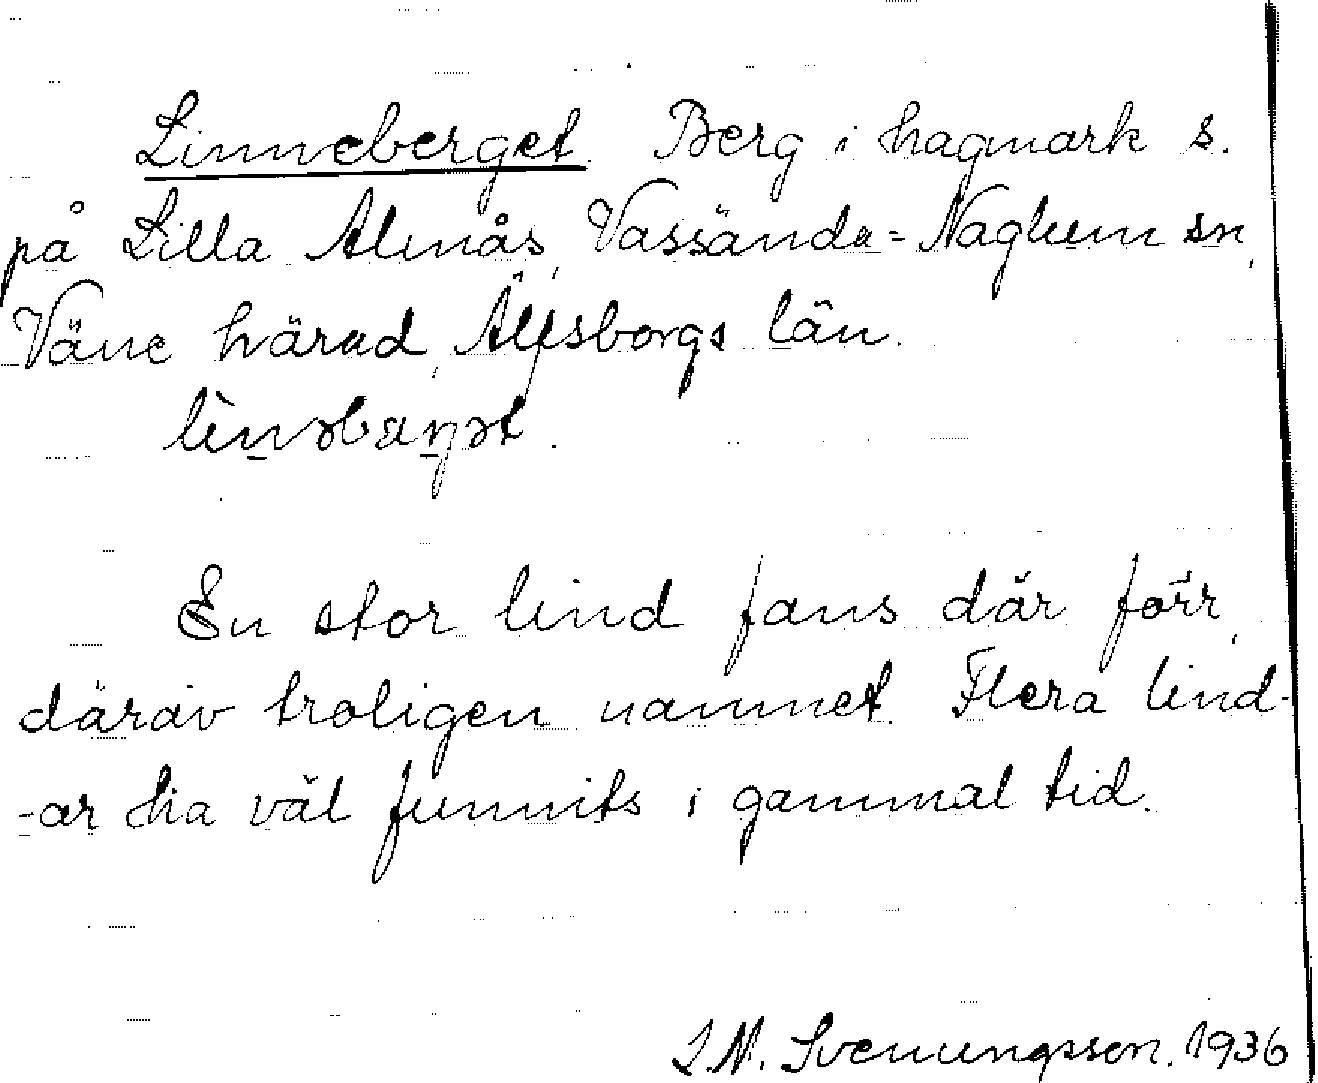 Linneberget. Berg i hagmark s.
på Lilla Almås, Vassända-Naglum sn,
Väne härad, Älfsborgs län.
En stor lind fans där förr,
därav troligen namnet. Flera lind-
-ar ha väl funnits i gammal tid.
J. N. Svenungsson. 1936